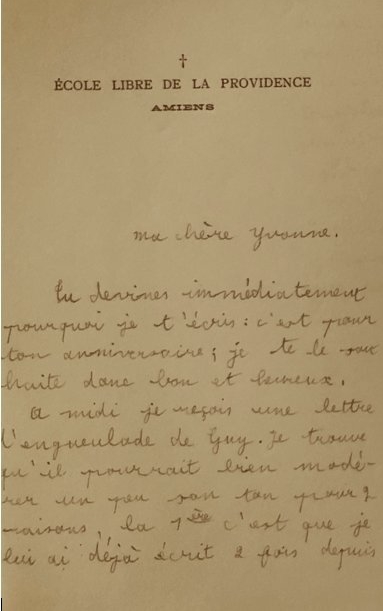 †
ÉCOLE LIBRE DE LA PROVIDENCE
AMIENS
ma chère Yvonne.
Tu devines immédiatement
pourquoi je t'écris : c'est pour
ton anniversaire ; je te le sou
haite donc bon et heureux.
A midi je reçois une lettre
d'engueulade de Guy. Je trouve
qu'il pourrait bien modé-
rer un peu son ton pour 2
raisons, la 1ère c'est que je
lui ai déjà écrit 2 fois depuis